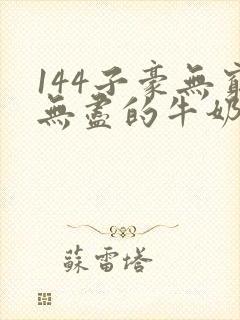 144子豪無窮
無盡的牛奶
蘇雷塔